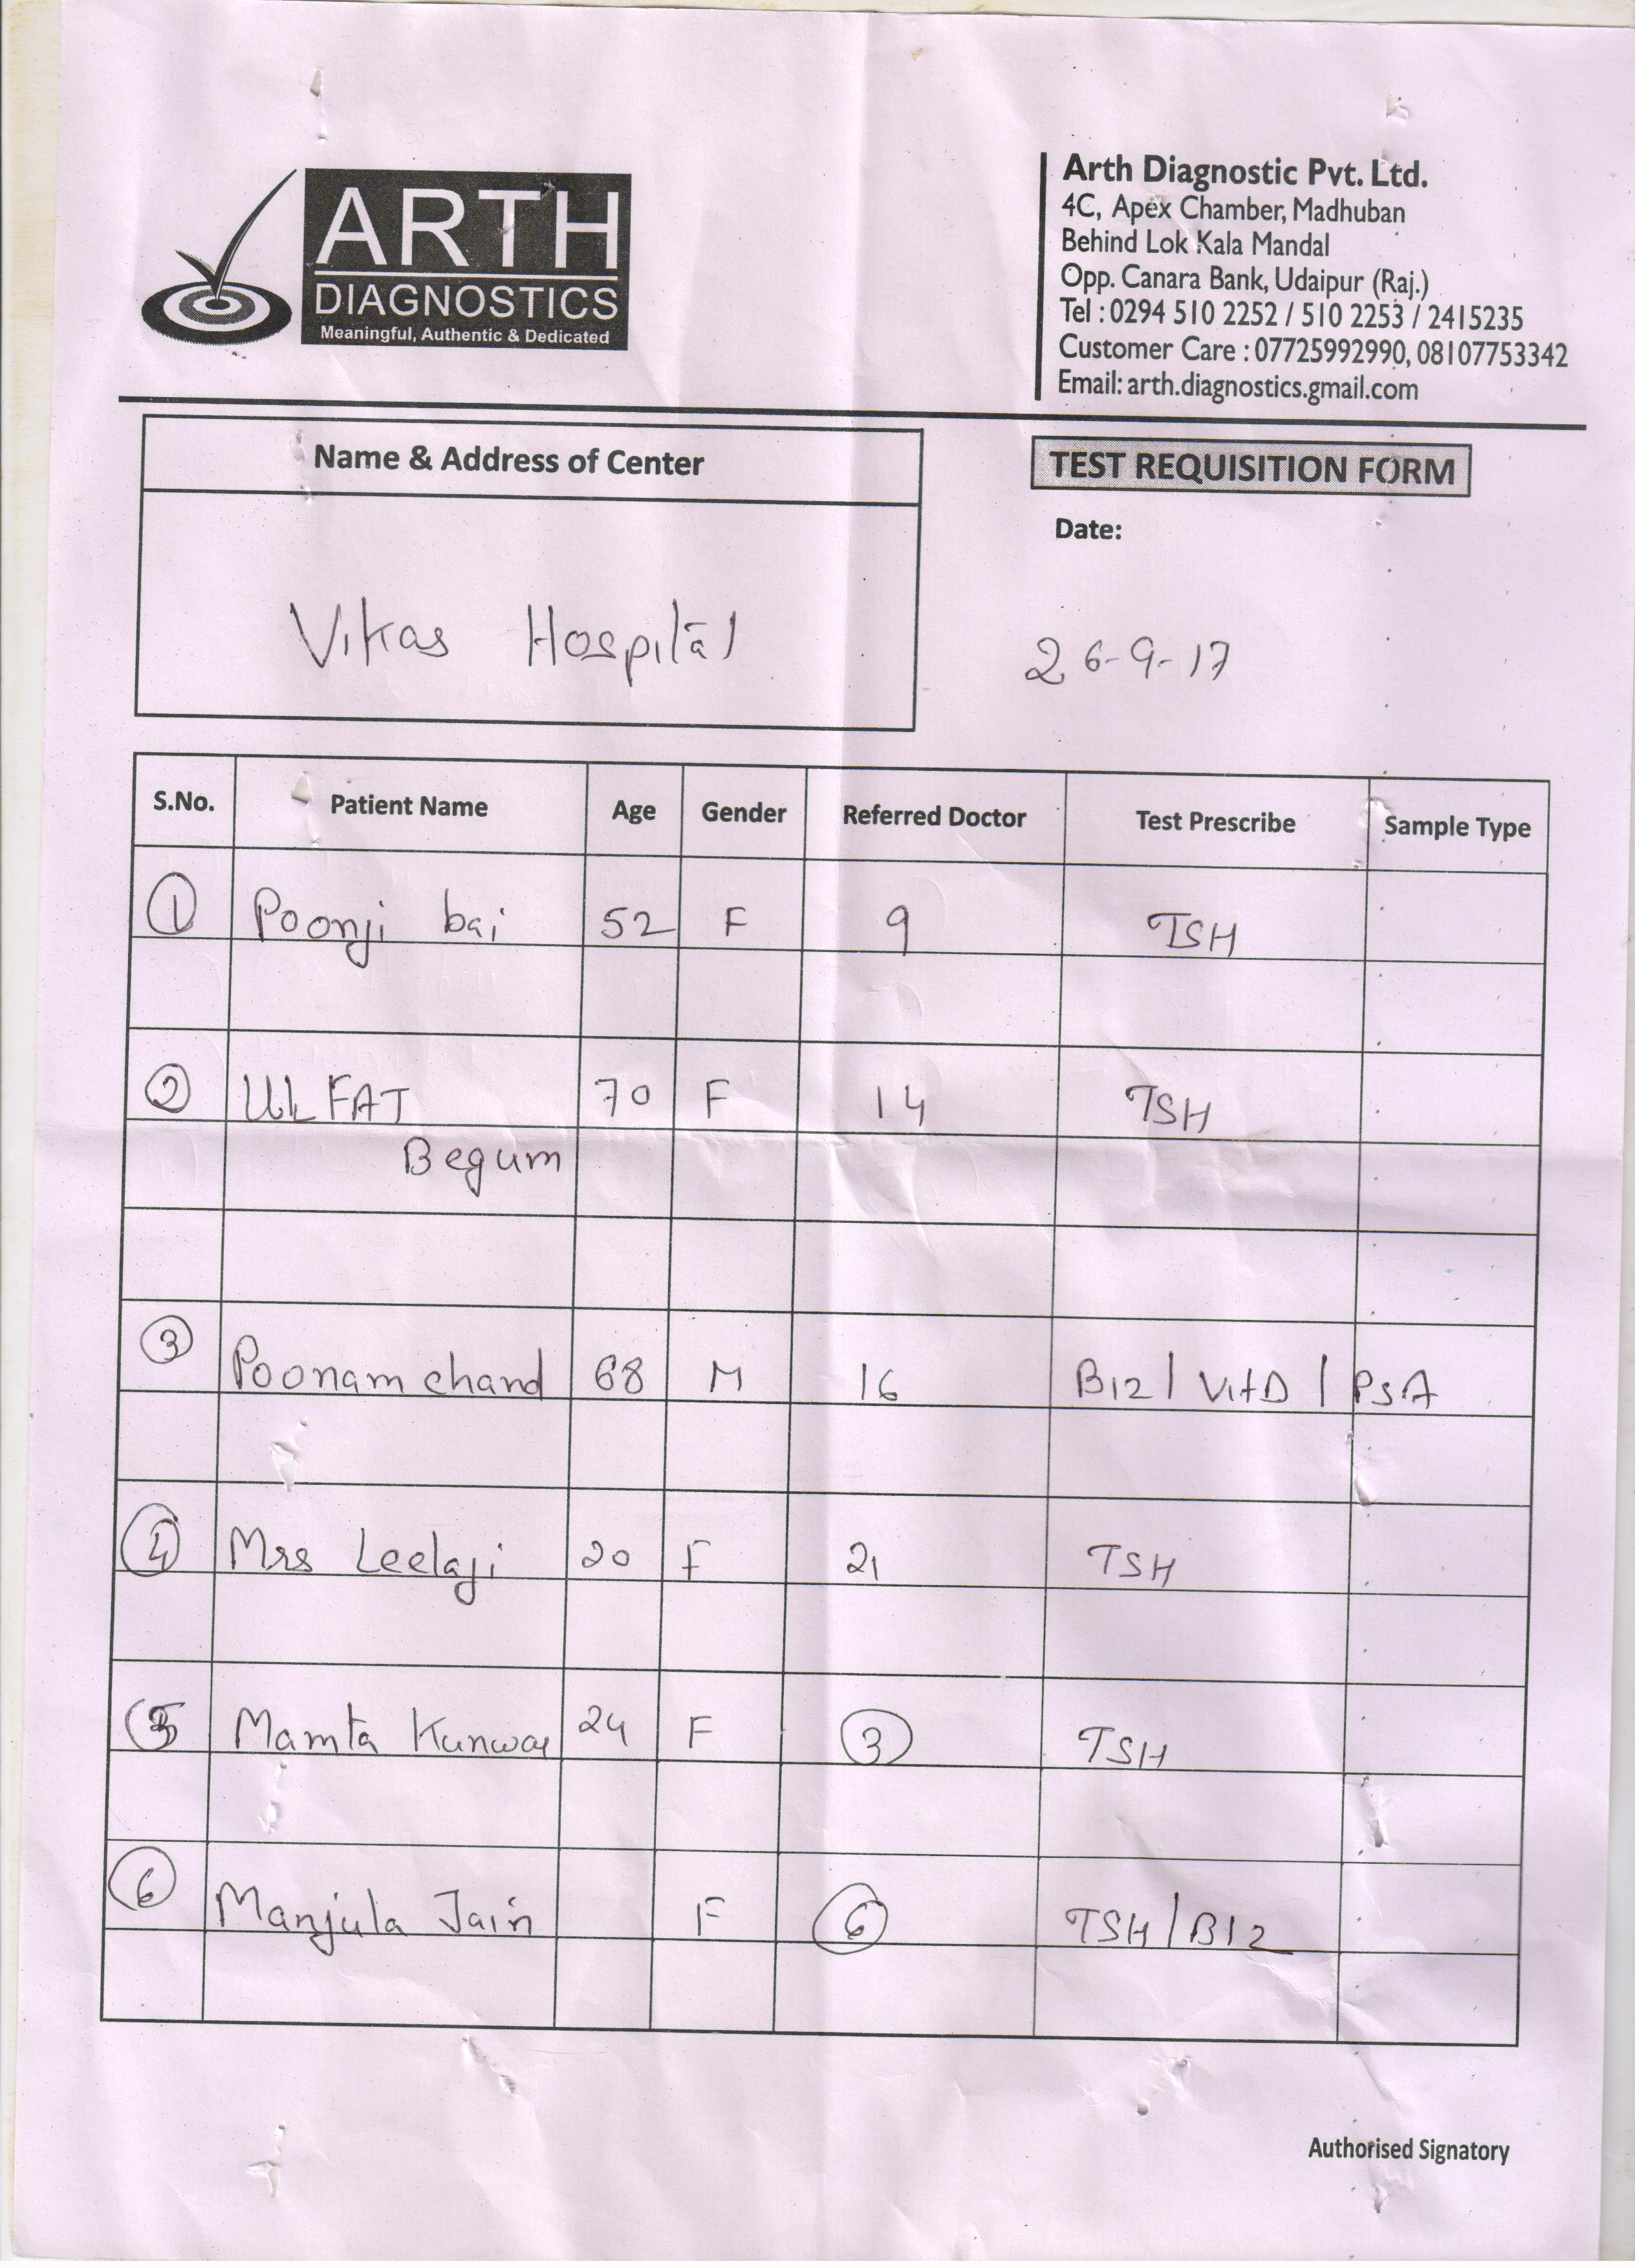 ARTH
DIAGNOSTICS
Meaningful, Authentic & Dedicated
Arth Diagnostic Pvt. Ltd.
4C, Apex Chamber, Madhuban
Behind Lok Kala Mandal
Opp. Canara Bank, Udaipur (Raj.)
Tel : 0294 510 2252 / 510 2253 / 2415235
Customer Care : 07725992990, 08107753342
Email: arth.diagnostics.gmail.com
Name & Address of Center
TEST REQUISITION FORM
Date:
Vikas Hospital
26-9-17
S.No. Patient Name Age Gender Referred Doctor Test Prescribe Sample Type
1 Poonji bai 52 F 9 TSH
2 ULFAT 70 F 14 TSH
Begum
3 Poonam chand 68 M 16 B12 / VitD / PSA
4 Mrs Leelaji 20 F 21 TSH
5 Mamta Kunwar 24 F 3 TSH
6 Manjula Jain F 6 TSH / B12
Authorised Signatory